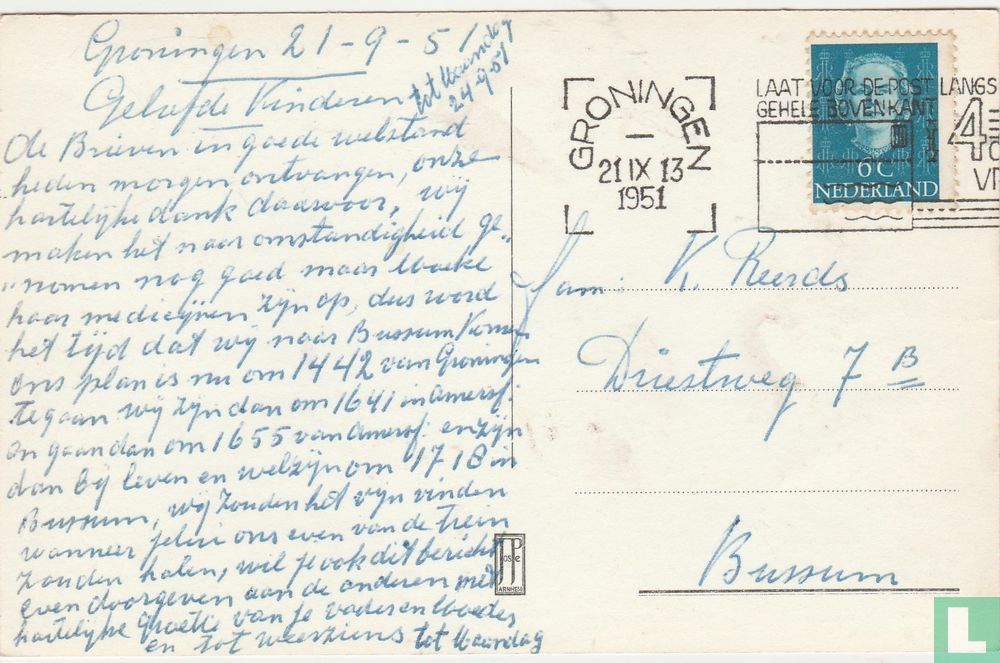 Groningen 21-9-51
Geliefde Kinderen
tot Maandag
24-9-51
de Brieven in goede welstand
heden morgen ontvangen, onze
hartelijke dank daarvoor, wij
maken het naar omstandigheid ge„
„nomen nog goed maar Moeke
haar medicijnen zijn op, dus word
het tijd dat wij naar Bussum komen
ons plan is nu om 1442 van Groningen
te gaan wij zijn dan om 1641 in Amersf.
en gaan dan om 1655 van Amersf. en zijn
dan bij leven en welzijn om 1718 in
Bussum, wij zouden het vijn vinden
wanneer jelui ons even van de trein
zouden halen, wil je ook dit bericht
even doorgeven aan de anderen met
hartelijke groette van je vader en Moeder
en tot weerziens tot Maandag
GRONINGEN
21 IX 13
1951
LAAT VOOR DE POST LANGS
GEHELE BOVENKANT
4
6c
NEDERLAND
Fam: K. Reerds
Driestweg 7 B
Bussum
JosPe
ARNHEM
L